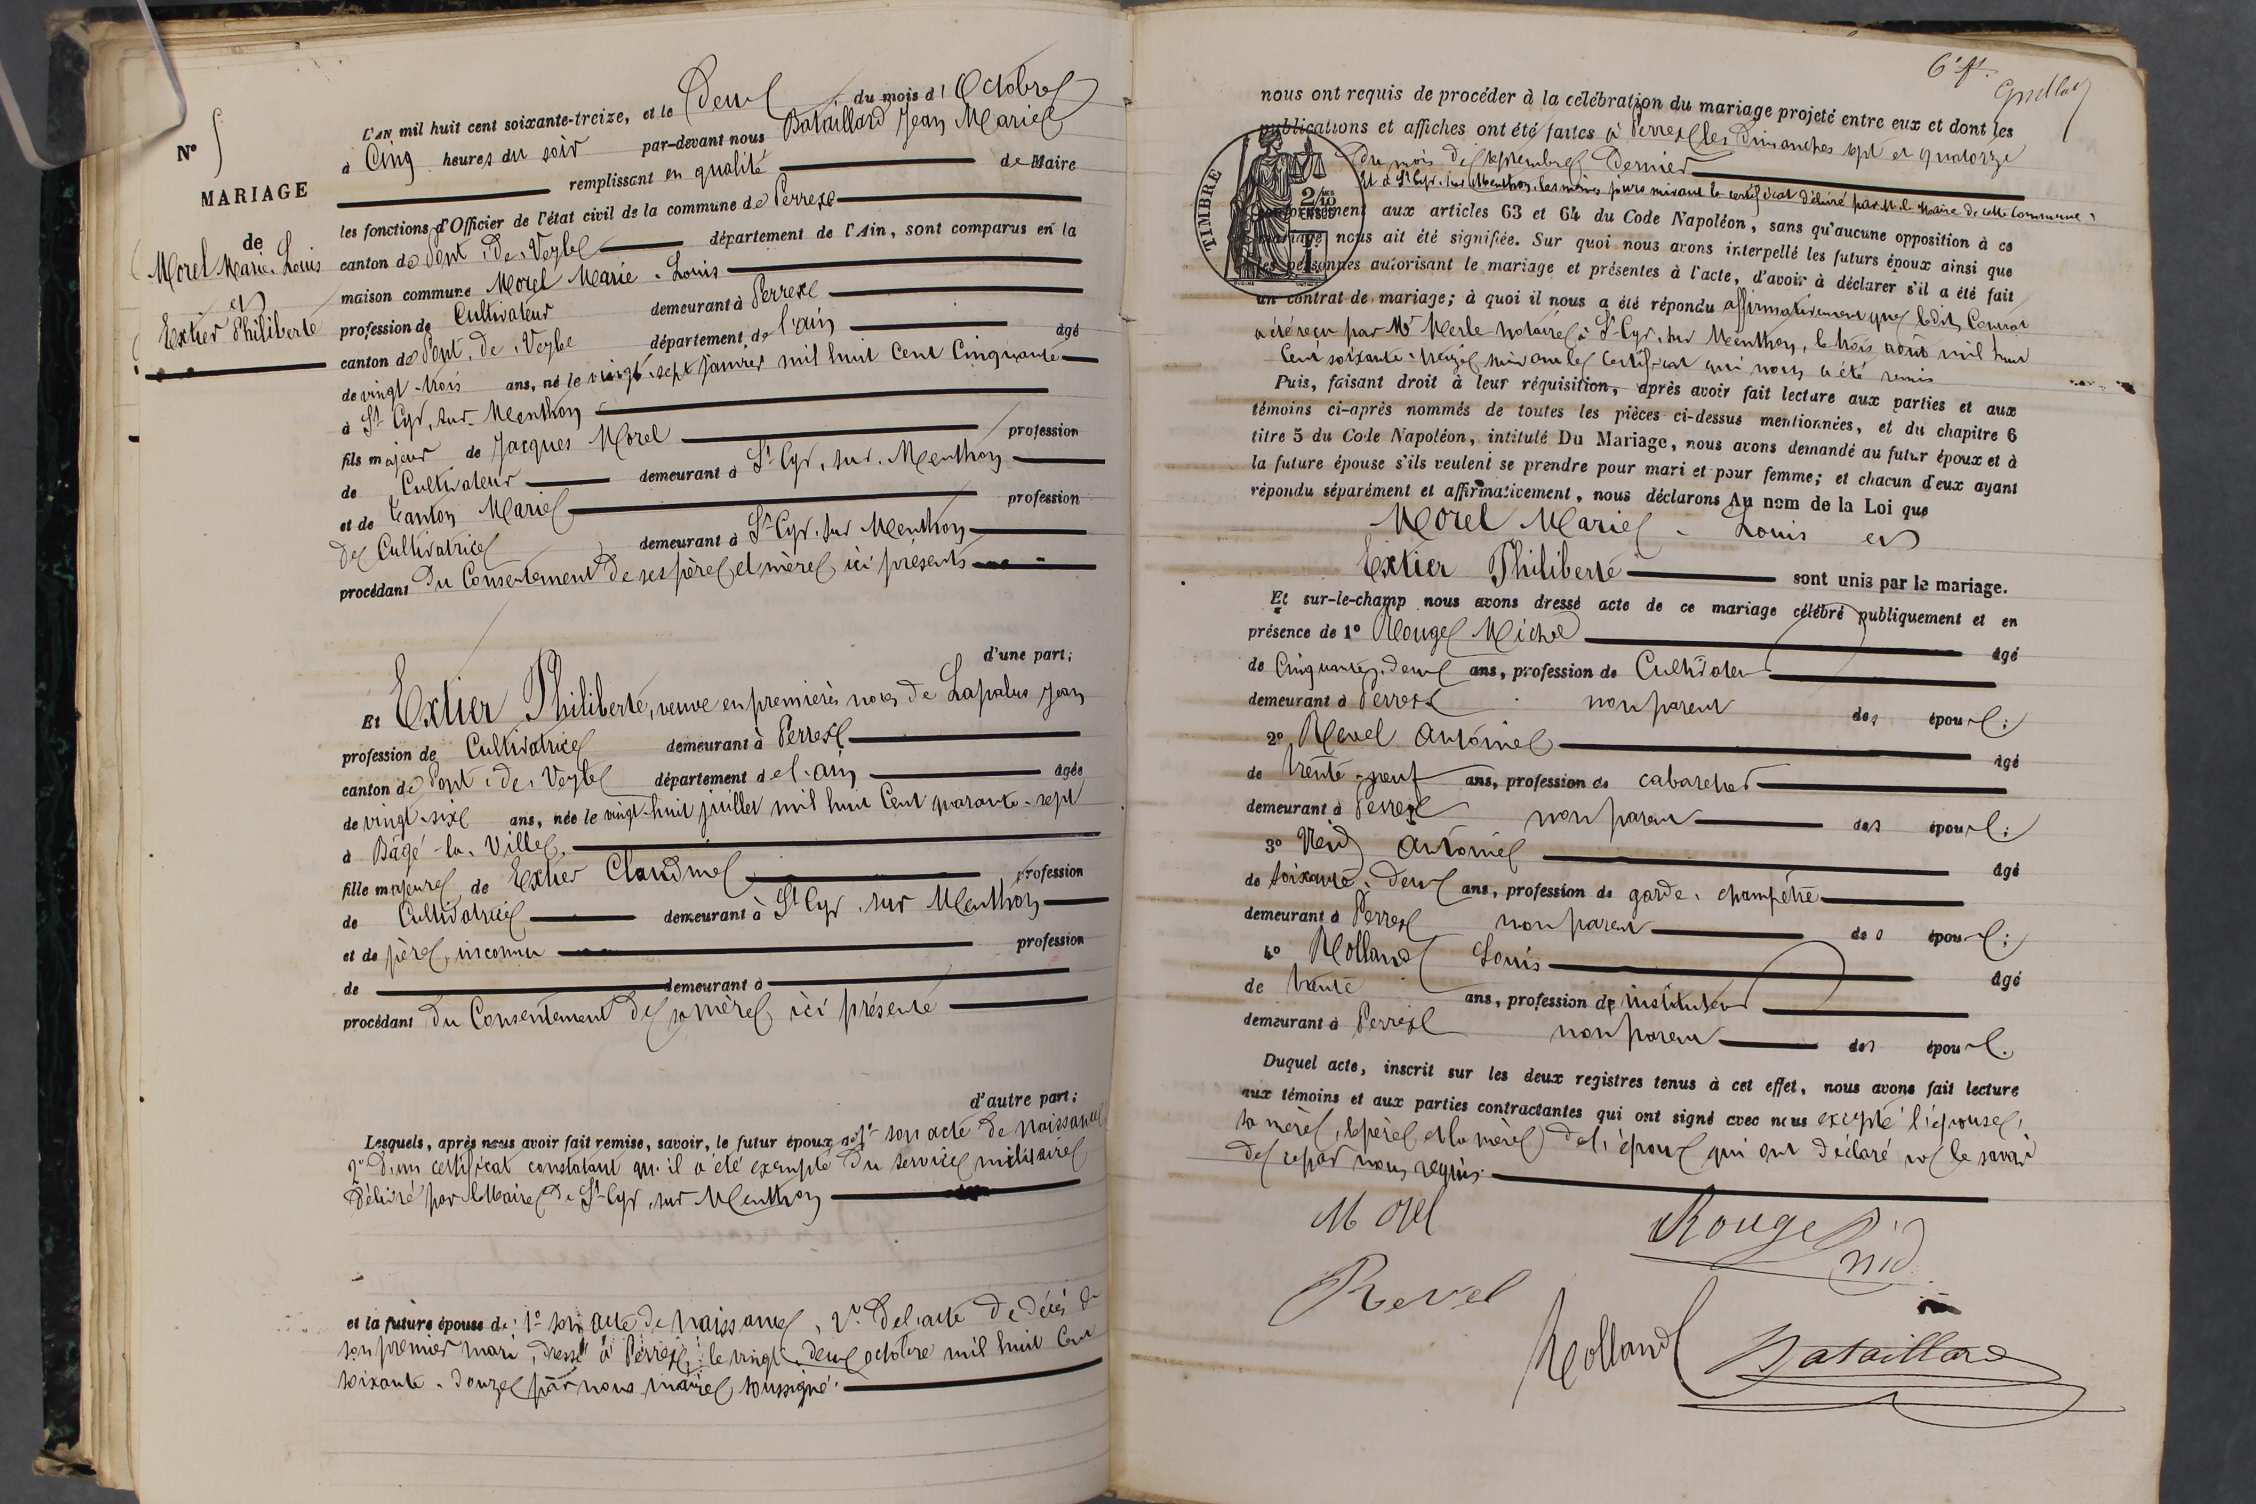 L'AN mil huit cent soixante-treize, et le Deux du mois d'Octobre
à Cinq heures du soir par-devant nous Bataillard Jean Marie
remplissant en qualité de Maire
les fonctions d'Officier de l'état civil de la commune de Perrex
canton de Pont-de-Veyle département de l'Ain, sont comparus en la
maison commune Morel Marie-Louis
profession de Cultivateur demeurant à Perrex
canton de Pont-de-Veyle département de l'ain âgé
de vingt-trois ans, né le vingt-sept janvier mil huit Cent Cinquante
à St Cyr-sur-Menthon
fils majeur de Jacques Morel profession
de Cultivateur demeurant à St Cyr-sur-Menthon
et de Tanton Marie profession
de Cultivatrice demeurant à St Cyr-sur Menthon
procédant du Consentement de ses père et mère ici présents
d'une part;
Et Extier Philiberte, veuve en premières noces de Lapalus Jean
profession de Cultivatrice demeurant à Perrex
canton de Pont-de-Veyle département de l'ain âgée
de vingt-six ans, née le vingt-huit juillet mil huit Cent quarante-sept
à Bâgé-la-Ville
fille majeure de Extier Claudine profession
de Cultivatrice demeurant à St Cyr-sur Menthon
et de père inconnu profession
de demeurant à
procédant du Consentement de sa mère ici présente
d'autre part;
Lesquels, après nous avoir fait remise, savoir, le futur époux de 1° son acte de naissance
2° d'un certificat constatant qu'il a été exempté du service militaire
délivré par le Maire de St-Cyr-sur Menthon
et la future épouse de: 1° son acte de naissance, 2° de l'acte de décès de
son premier mari, dressé à Perrex, le vingt-deux octobre mil huit Cent
soixante-douze par nous maire soussigné.
N° 5
MARIAGE
de
Morel Marie-Louis
et
Extier Philiberte
6e ft.
nous ont requis de procéder à la célébration du mariage projeté entre eux et dont les
publications et affiches ont été faites à Perrex les Dimanches sept et quatorze
du mois de septembre dernier
et à St Cyr-sur Menthon, les mêmes jours suivant le certificat délivré par M. le Maire de cette Commune,
conformément aux articles 63 et 64 du Code Napoléon, sans qu'aucune opposition à ce
mariage nous ait été signifiée. Sur quoi nous avons interpellé les futurs époux ainsi que
les personnes autorisant le mariage et présentes à l'acte, d'avoir à déclarer s'il a été fait
un contrat de mariage; à quoi il nous a été répondu affirmativement que ledit Contrat
a été reçu par Me Merle notaire à St Cyr-sur Menthon, le trois août mil huit
Cent soixante-treize suivant le Certificat qui nous a été remis
TIMBRE
2/10
EN SUS
1
Puis, faisant droit à leur réquisition, après avoir fait lecture aux parties et aux
témoins ci-après nommés de toutes les pièces ci-dessus mentionnées, et du chapitre 6
titre 5 du Code Napoléon, intitulé Du Mariage, nous avons demandé au futur époux et à
la future épouse s'ils veulent se prendre pour mari et pour femme; et chacun d'eux ayant
répondu séparément et affirmativement, nous déclarons Au nom de la Loi que
Morel Marie-Louis et
Extier Philiberte sont unis par le mariage.
Et sur-le-champ nous avons dressé acte de ce mariage célébré publiquement et en
présence de 1° Rouge Michel âgé
de Cinquante-deux ans, profession de Cultivateur
demeurant à Perrex non parent des époux;
2° Revel Antoine âgé
de trente-neuf ans, profession de cabaretier
demeurant à Perrex non parent des époux;
3° Nid Antoine âgé
de soixante-deux ans, profession de garde-champêtre
demeurant à Perrex non parent des époux;
4° Rolland Louis âgé
de trente ans, profession d'instituteur
demeurant à Perrex non parent des époux.
Duquel acte, inscrit sur les deux registres tenus à cet effet, nous avons fait lecture
aux témoins et aux parties contractantes qui ont signé avec nous excepté l'épouse,
sa mère, le père et la mère de l'époux qui ont déclaré ne le savoir
de ce par nous requis.
Morel
Rouge
nid
Revel
Rolland
Bataillard